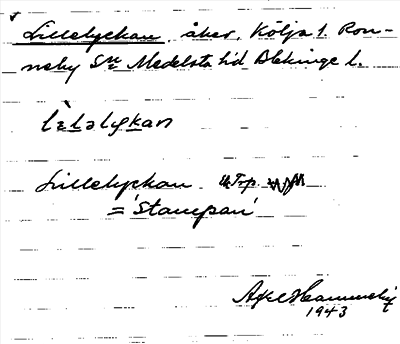 Lillelyckan, åker, Kölja 1. Ron-
neby Sn Medelsta hd Blekinge l.
lɛ̀lǝlykan
Lillelyckan
= 'Stampan'
Axel
1943